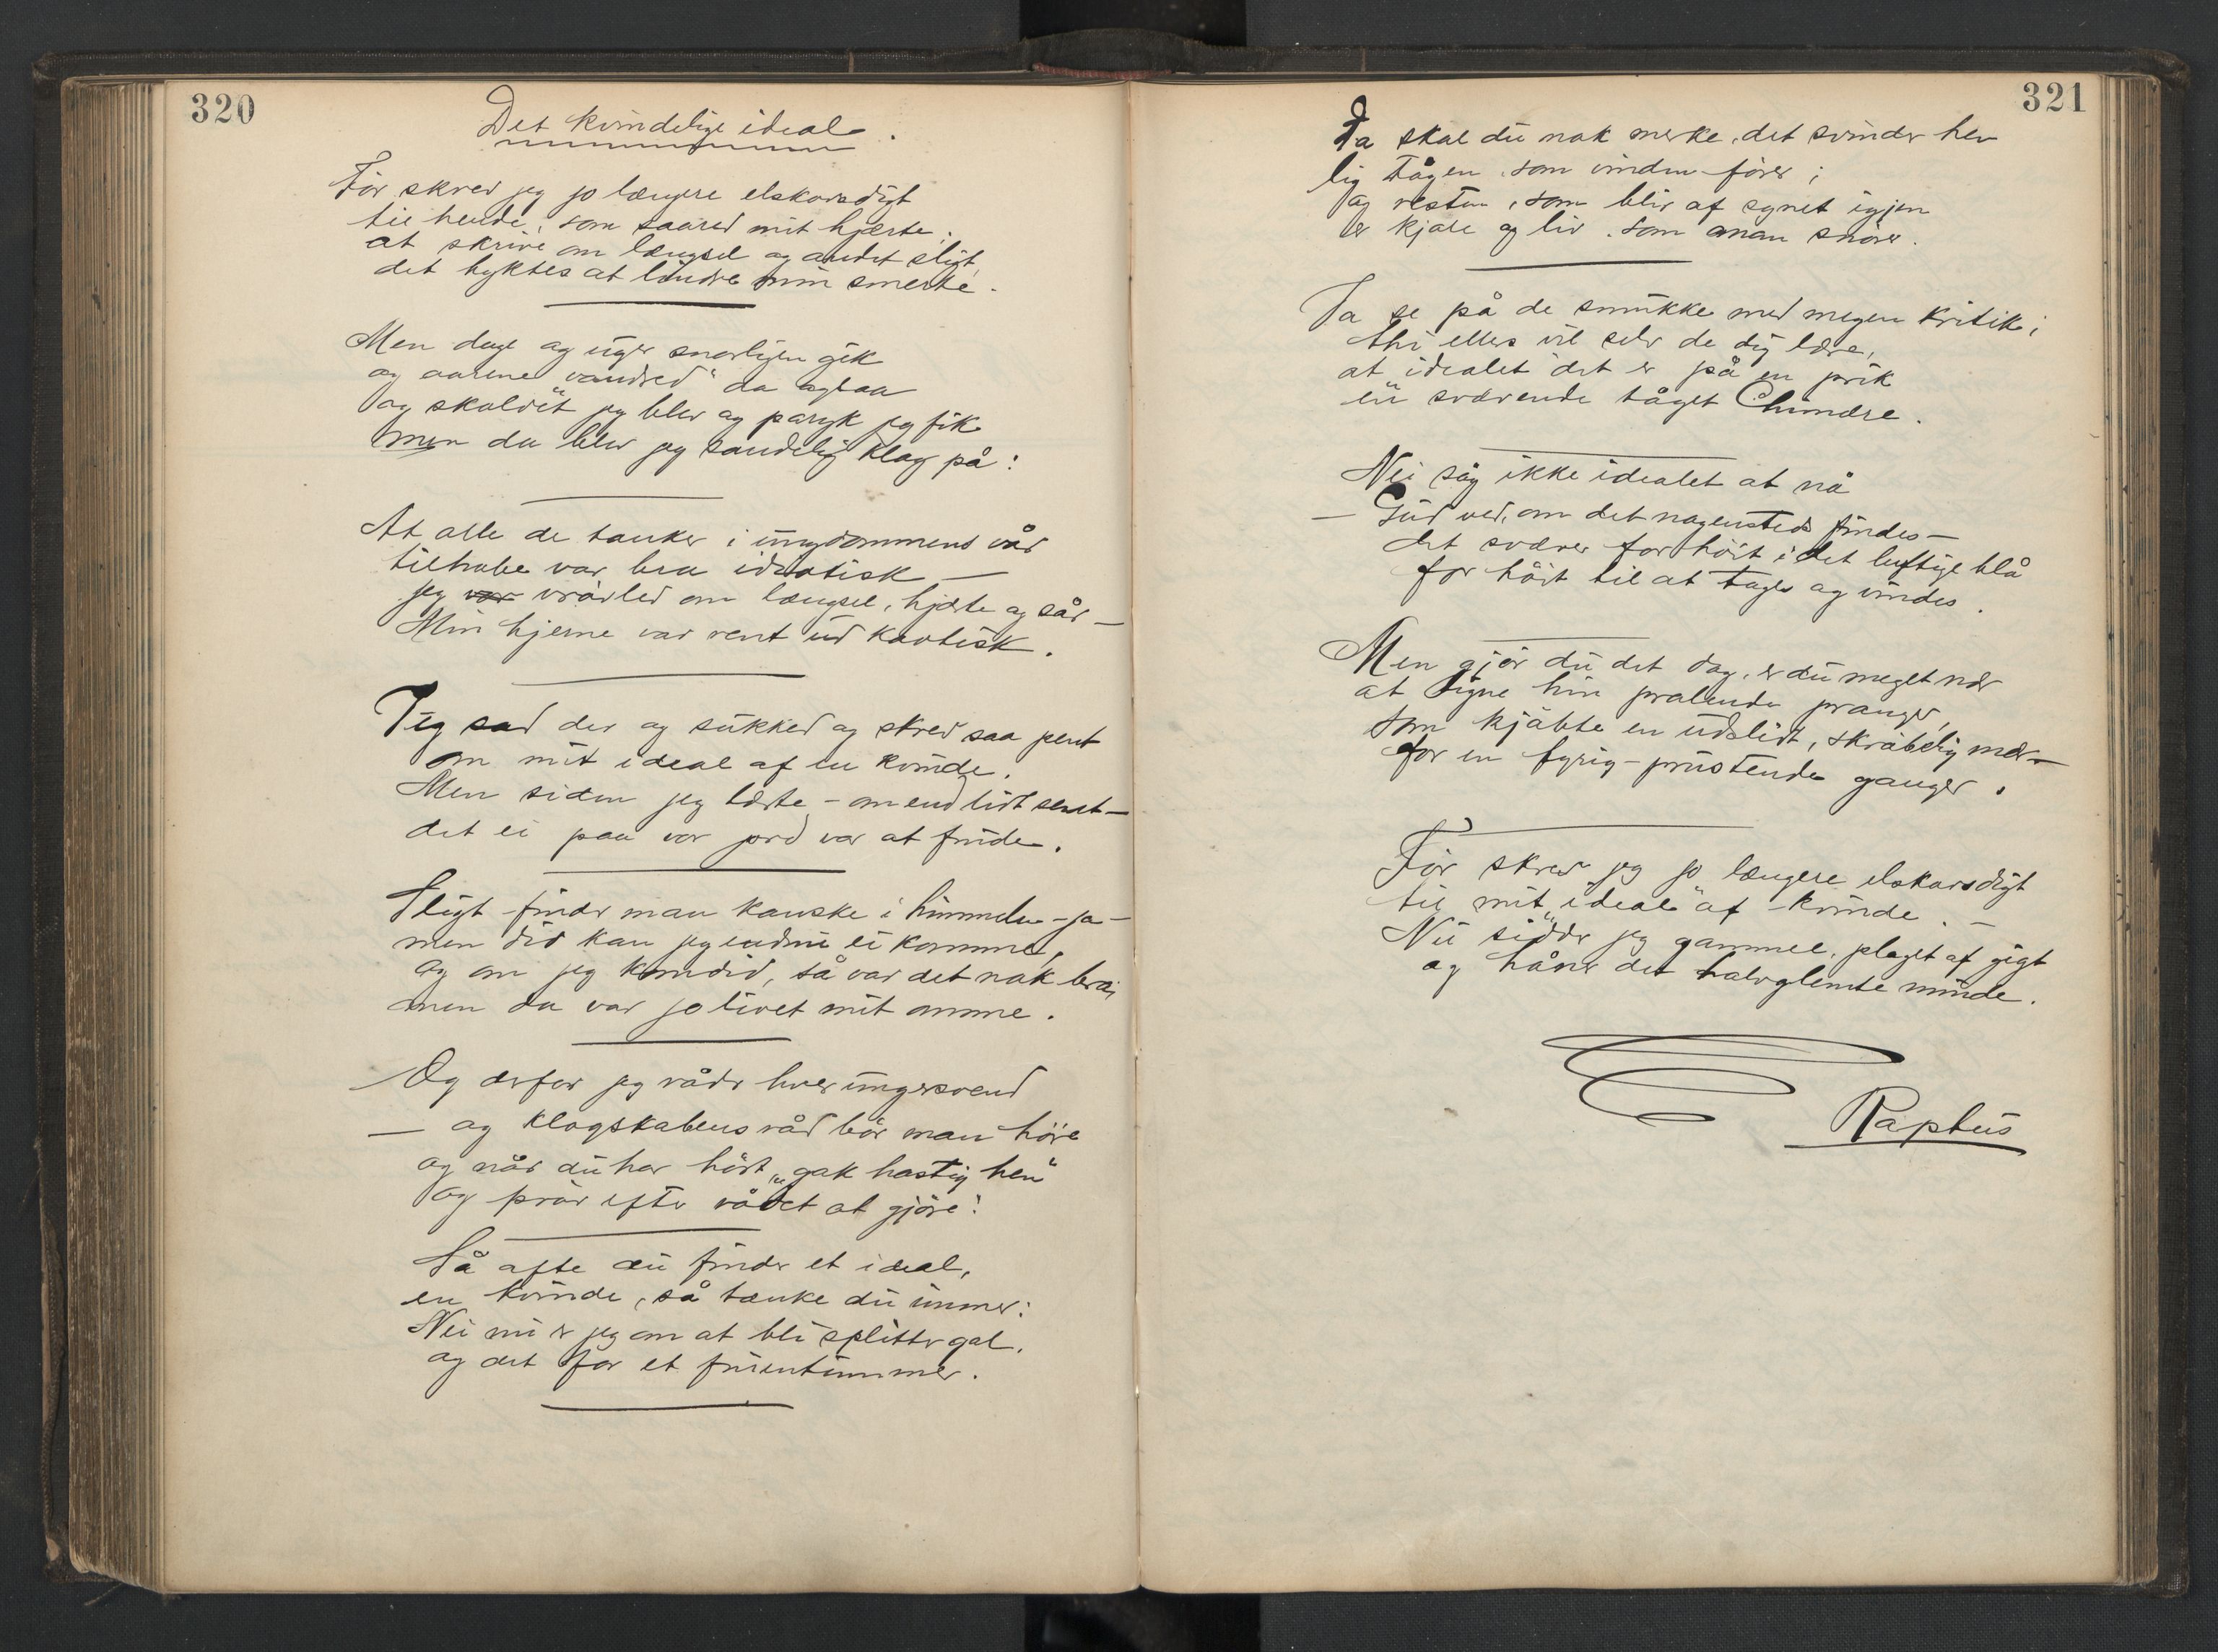 320
Det kvindelige ideal.
Før skrev jeg jo længere elskovsdigt
til hende, som saared mit hjerte;
at skrive om længsel og andet sligt,
det lyktes at lindre min smerte.
Men dage og uger snarligen gik
og aarene "vandred" da ogsaa
og skaldet jeg blev og paryk jeg fik
men da blev jeg sandelig klog på:
At alle de tanker i ungdommens vår
tilhabe var bra idiotisk —
jeg var vrøvled om længsel, hjerte og sår —
Min hjerne var rent ud kaotisk.
Jeg sad der og sukked og skrev saa pent
om mit ideal af en kvinde.
Men siden jeg lærte – om end lidt sent –
det ei paa vor jord var at finde.
Sligt finder man kanske i himmelen – ja –
men did kan jeg endnu ei komme,
og om jeg kom did, så var det nok bra;
men da var jo livet mit omme.
Og derfor jeg råder hver ungersvend
— og klogskabens råd bør man høre
og når du har hørt, „gak hastig hen"
og prøv efter rådet at gjøre!
Så ofte du finder et ideal,
en kvinde, så tænke du immer:
Nei nu er jeg om at bli splitter gal,
og det for et fruentimmer.
321
Da skal du nok merke, det svinder hen
lig tågen, som vinden fører;
og resten, som blir af synet igjen
er kjole og liv, som man snører.
Ja se på de smukke med megen kritik;
thi ellers vil selv de dig lære,
at idealet det er på en prik
en svævende tåget Chimære.
Nei søg ikke idealet at nå
— Gud ved, om det nogensteds findes —
det svæver for høit i det luftige blå
for høit til at tages og vindes.
Men gjør du det dog, er du meget nær
at ligne hin pralende pranger,
som kjøbte en udslidt, skrøbelig mær —
for en fyrig-prustende ganger.
Før skrev jeg jo længere elskovsdigt
til mit „ideal" af kvinde. —
Nu sidder jeg gammel, plaget af gigt
og håner det halvglemte minde.
Raptus